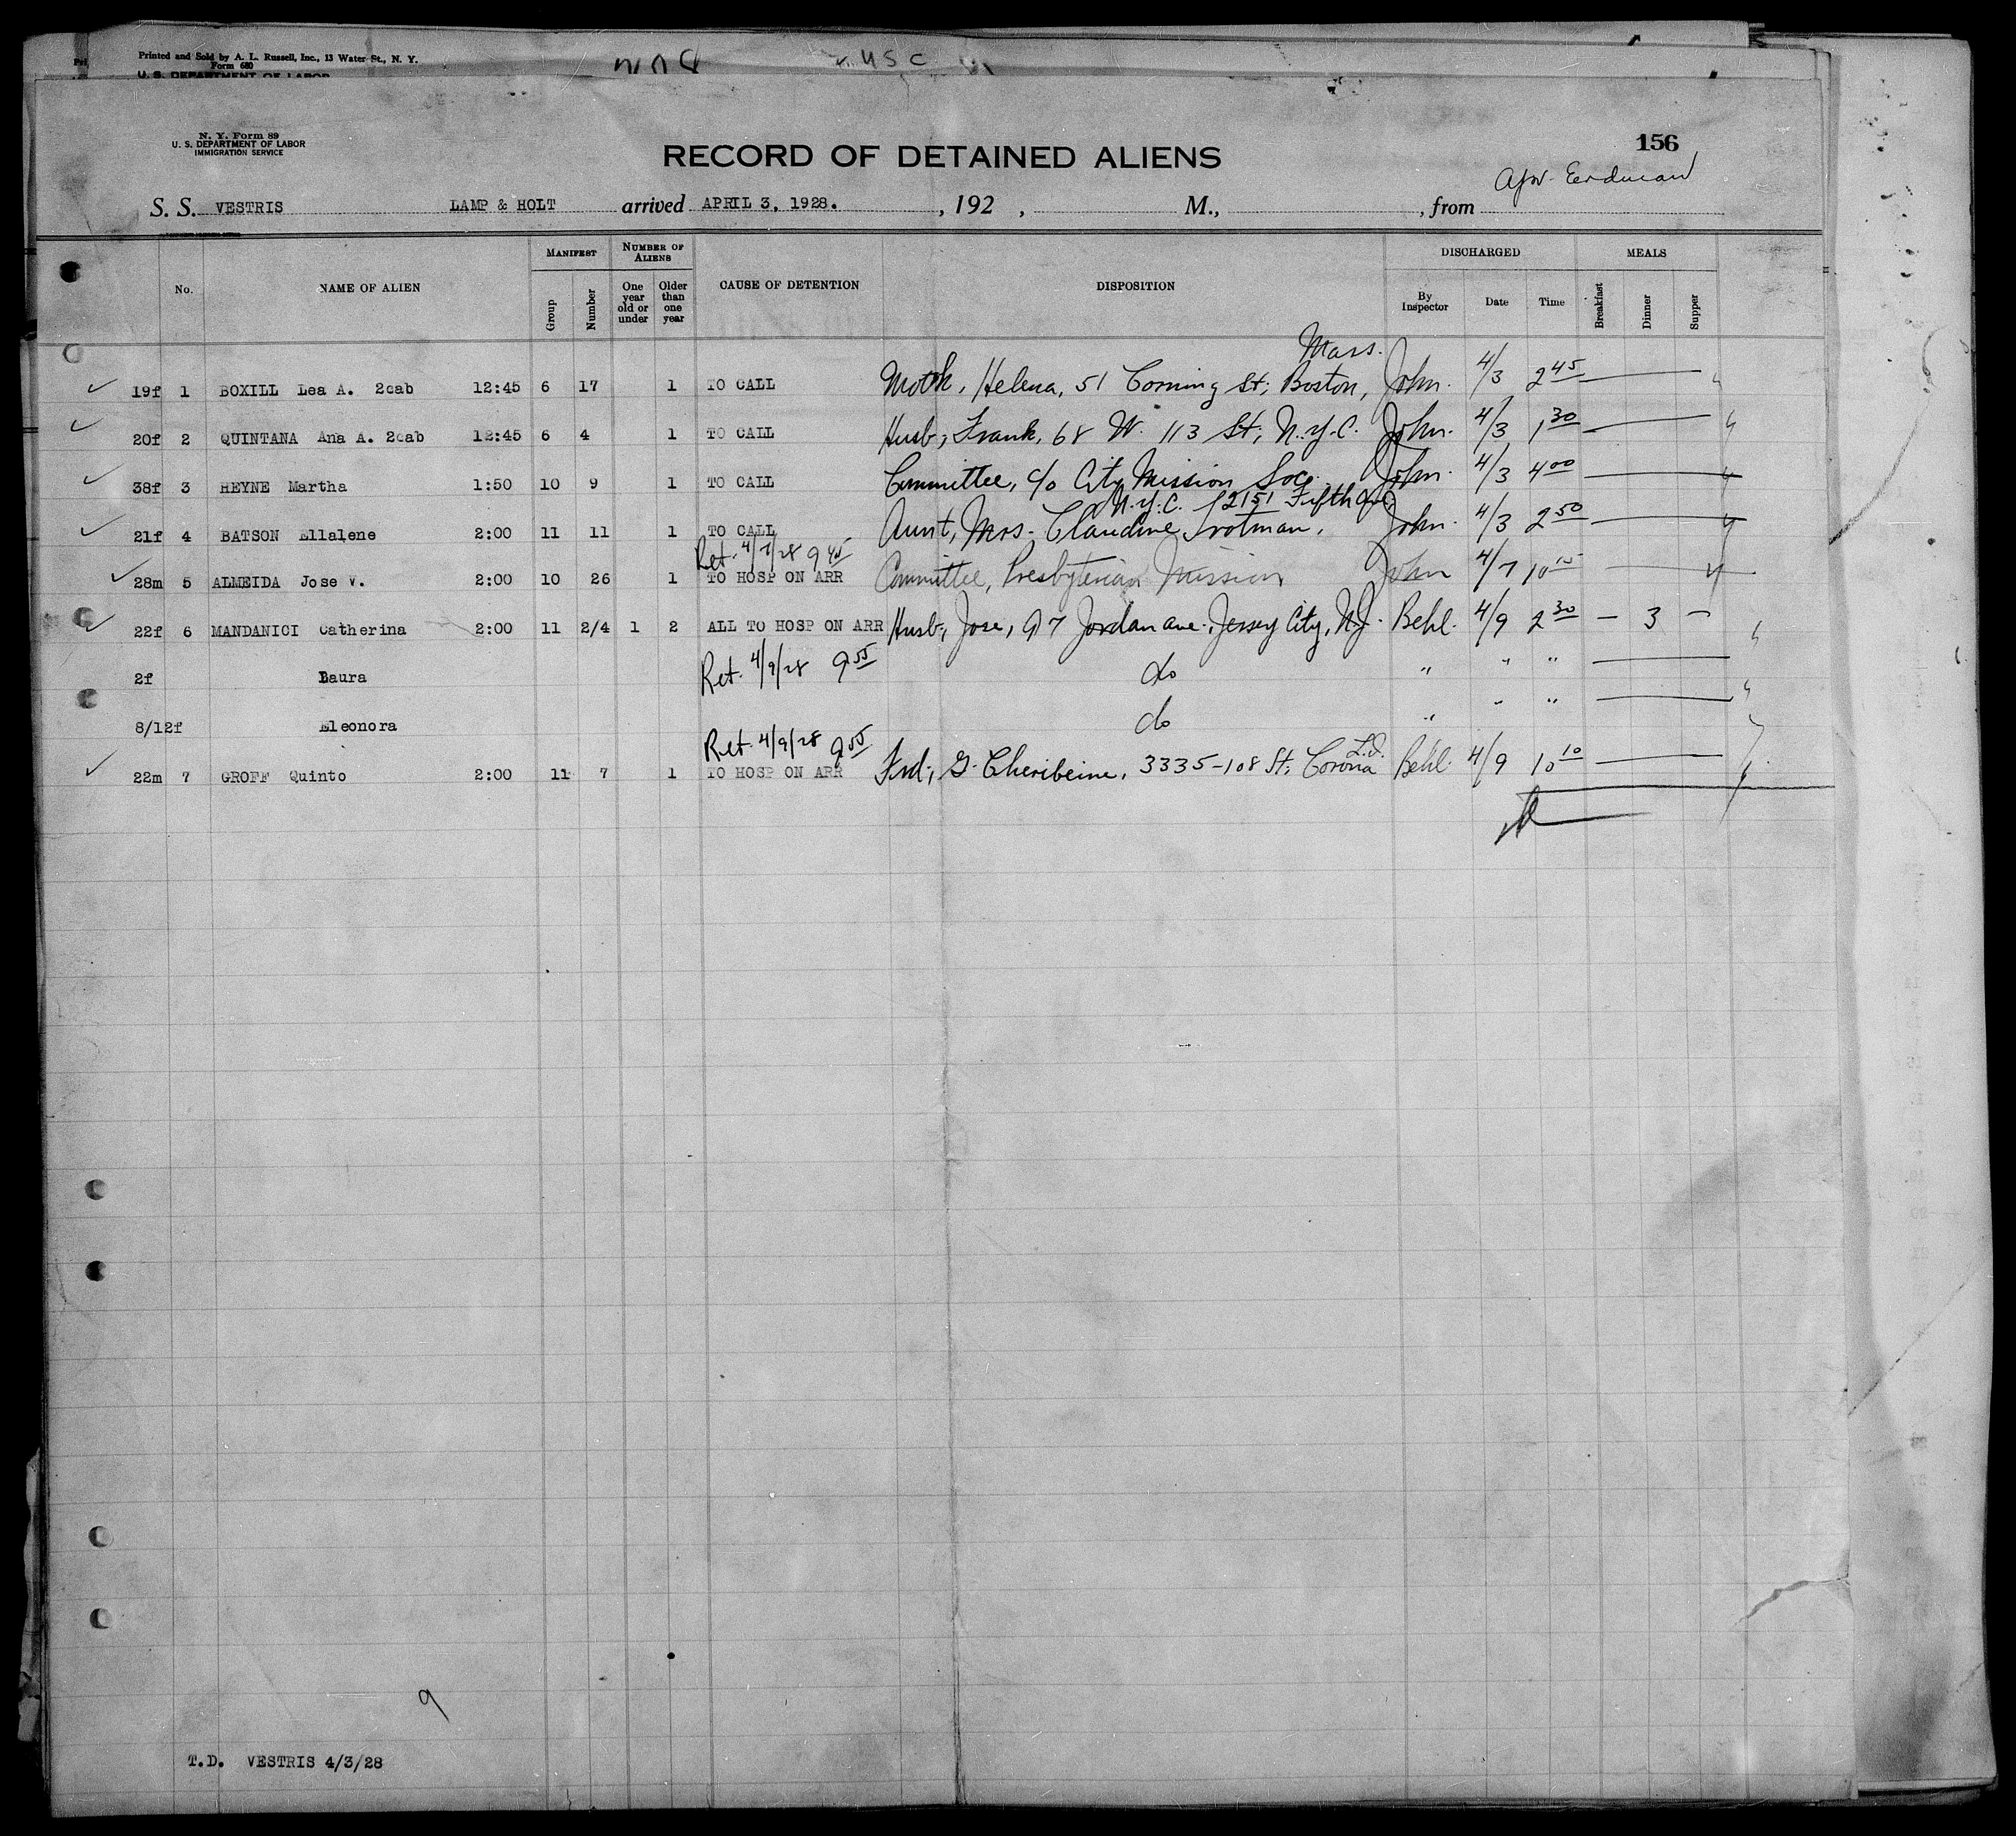 Printed and Sold by A. L. Russell, Inc., 13 Water St., N. Y.
Form 680
U. S. DEPARTMENT OF LABOR
U S C
N. Y. Form 89
U. S. DEPARTMENT OF LABOR
IMMIGRATION SERVICE
RECORD OF DETAINED ALIENS
156
S. S. VESTRIS LAMP & HOLT arrived APRIL 3, 1928. , 192 , M., , from
No. NAME OF ALIEN MANIFEST Group Number NUMBER OF ALIENS One year old or under Older than one year CAUSE OF DETENTION DISPOSITION DISCHARGED By Inspector Date Time MEALS Breakfast Dinner Supper
Mass.
19f 1 BOXILL Lea A. 2cab 12:45 6 17 1 TO CALL Moth, Helena, 51 Corning St; Boston, John. 4/3 2 45
20f 2 QUINTANA Ana A. 2cab 12:45 6 4 1 TO CALL Husb, Frank, 68 W. 113 St; N.Y.C. John. 4/3 1 30
38f 3 HEYNE Martha 1:50 10 9 1 TO CALL Committee, c/o City Mission Soc. John. 4/3 4 00
N.Y.C. 2151 Fifth Ave
21f 4 BATSON Ellalene 2:00 11 11 1 TO CALL Aunt, Mrs. Claudine Trotman, John. 4/3 2 50
Ret. 4/7/28 9 45
28m 5 ALMEIDA Jose V. 2:00 10 26 1 TO HOSP ON ARR Committee, Presbyterian Mission John 4/7 10 15
22f 6 MANDANICI Catherina 2:00 11 2/4 1 2 ALL TO HOSP ON ARR Husb, Jose, 97 Jordan ave. Jersey City, N.J. Behl. 4/9 2 30 — 3 —
2f Laura Ret. 4/9/28 9 55 do " " "
8/12f Eleonora do " " "
Ret. 4/9/28 9 55
22m 7 GROFF Quinto 2:00 11 7 1 TO HOSP ON ARR Frd; G. Cheribeine, 3335-108 St; Corona L.I. Behl. 4/9 10 10
9
T.D. VESTRIS 4/3/28